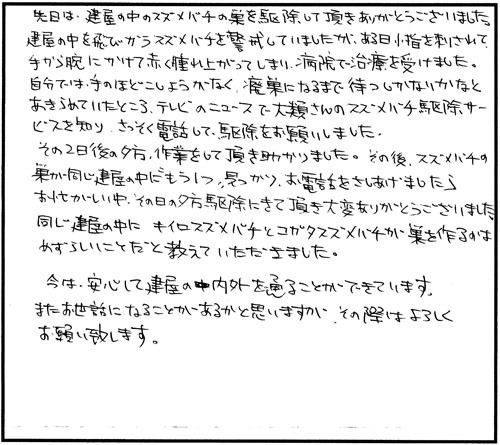 先日は、建屋の中のスズメバチの巣を駆除して頂きありがとうございました。
建屋の中を飛びかうスズメバチを警戒していましたが、ある日小指を刺されて、
手から腕にかけて赤く腫れ上がってしまい、病院で治療を受けました。
自分では、手のほどこしようがなく、廃巣になるまで待つしかないかなと
あきらめていたところ、テレビのニュースで大類さんのスズメバチ駆除サー
ビスを知り、さっそく電話して、駆除をお願いしました。
その2日後の夕方、作業をして頂き助かりました。その後、スズメバチの
巣が同じ建屋の中にもう1つ、見つかり、お電話をさしあげましたら
おいそがしい中、その日の夕方駆除にきて頂き大変ありがとうございました
同じ建屋の中に キイロスズメバチとコガタスズメバチが巣を作るのは
めずらしいことだと教えていただきました。
今は、安心して建屋の中内外を通ることができています。
またお世話になることがあるかと思いますが、その際はよろしく
お願い致します。